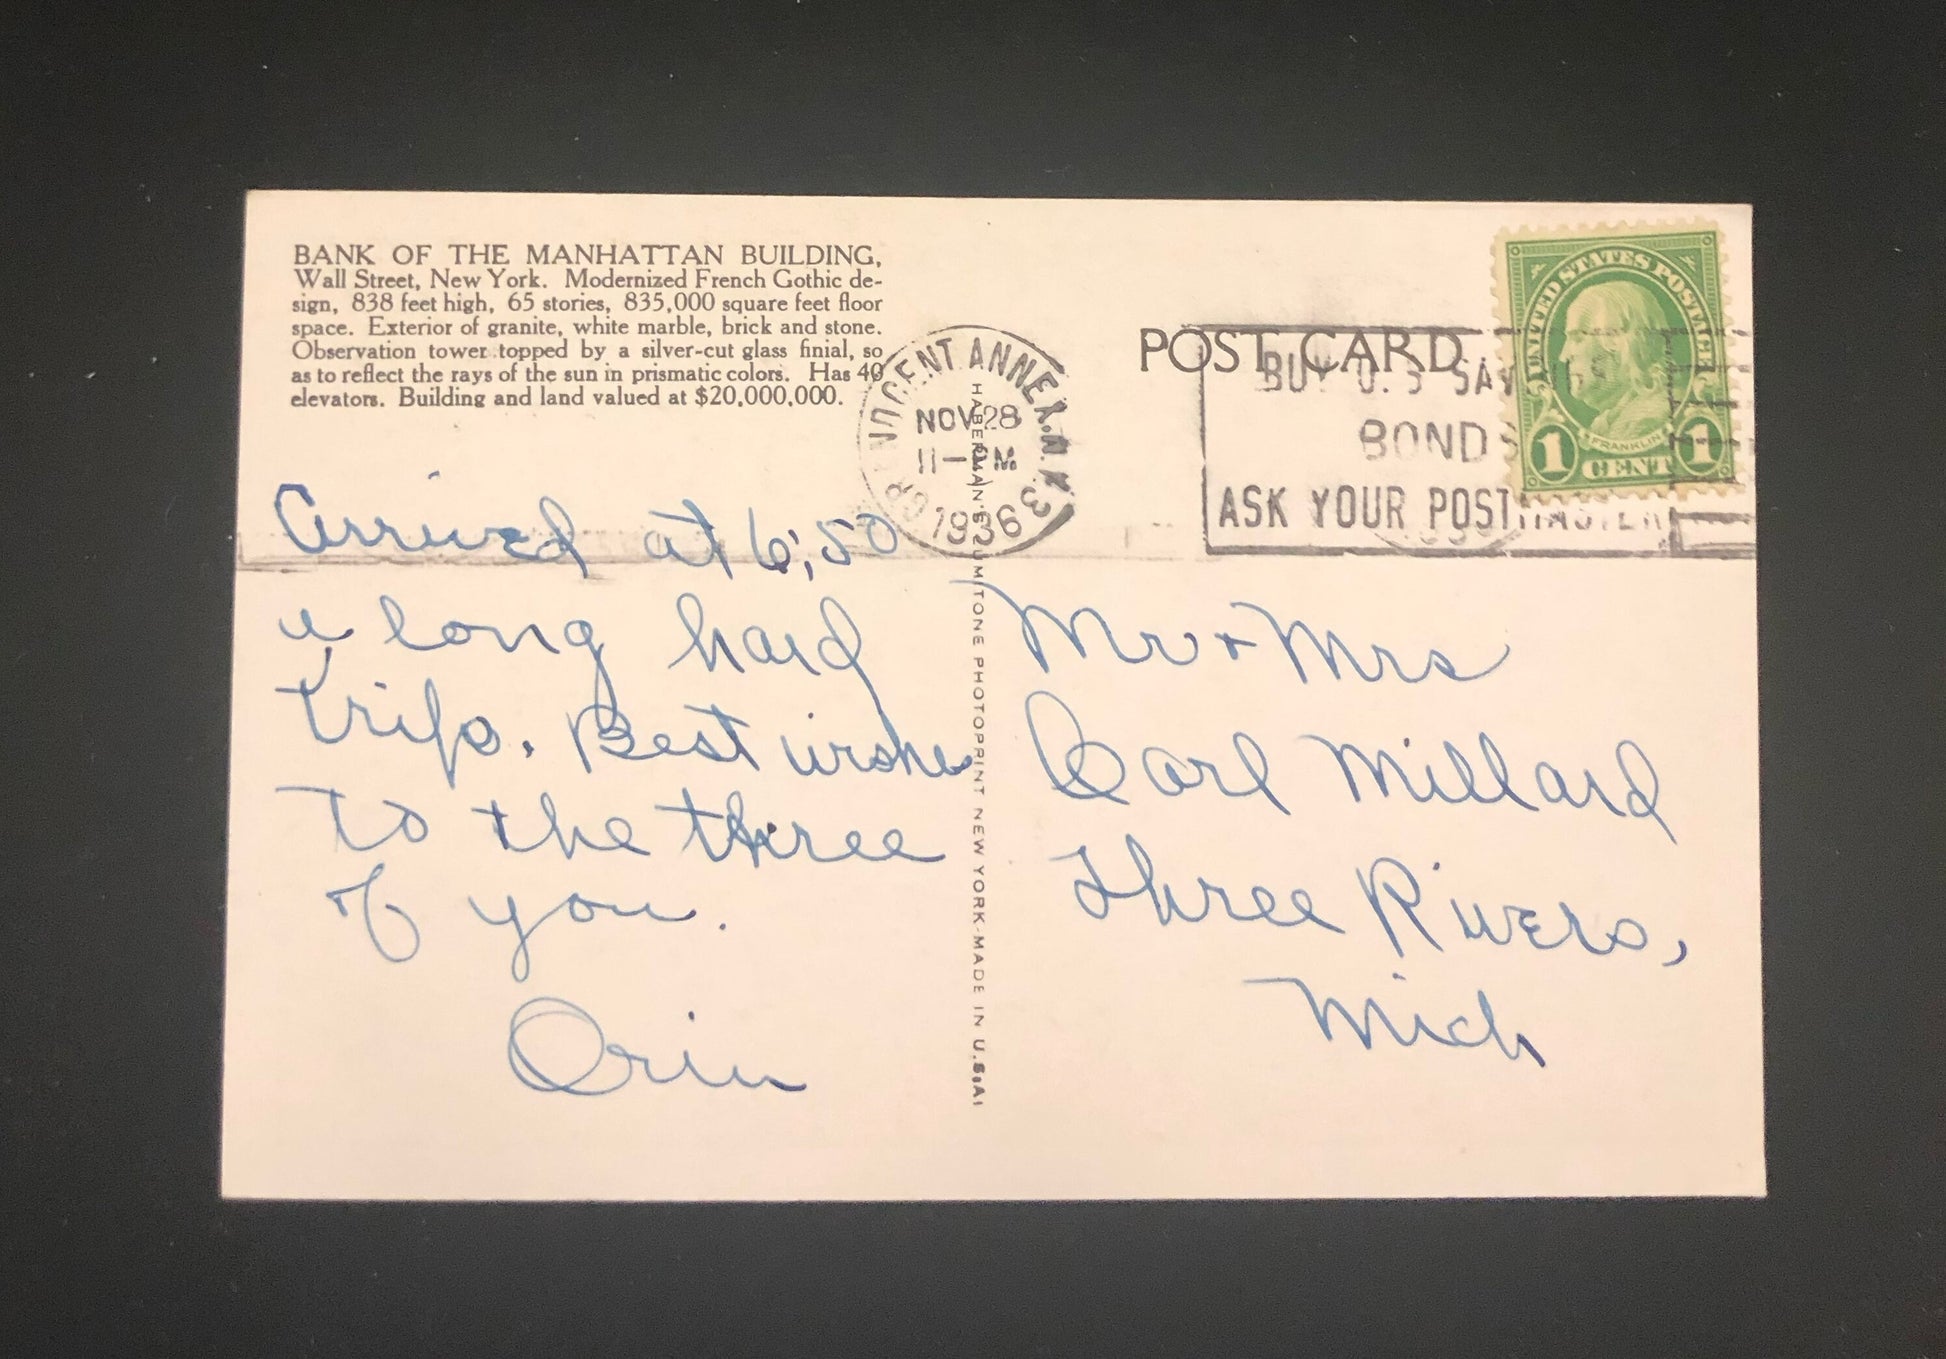 BANK OF THE MANHATTAN BUILDING,
Wall Street, New York. Modernized French Gothic de-
sign, 838 feet high, 65 stories, 835,000 square feet floor
space. Exterior of granite, white marble, brick and stone.
Observation tower topped by a silver-cut glass finial, so
as to reflect the rays of the sun in prismatic colors. Has 40
elevators. Building and land valued at $20,000,000.
Arrived at 6:50
a long hard
trip. Best wishes
to the three
of you.
Orin
HABERMAN'S
PHOTOPRINT NEW YORK-MADE IN U.S.A.
ANNEX N.Y. 3
NOV 28
11-M
1936
POST CARD
BUY U.S SAV
BONDS
ASK YOUR POSTMASTER
UNITED STATES POSTAGE
FRANKLIN
1 CENT 1
Mr + Mrs
Carl Millard
Three Rivers,
Mich